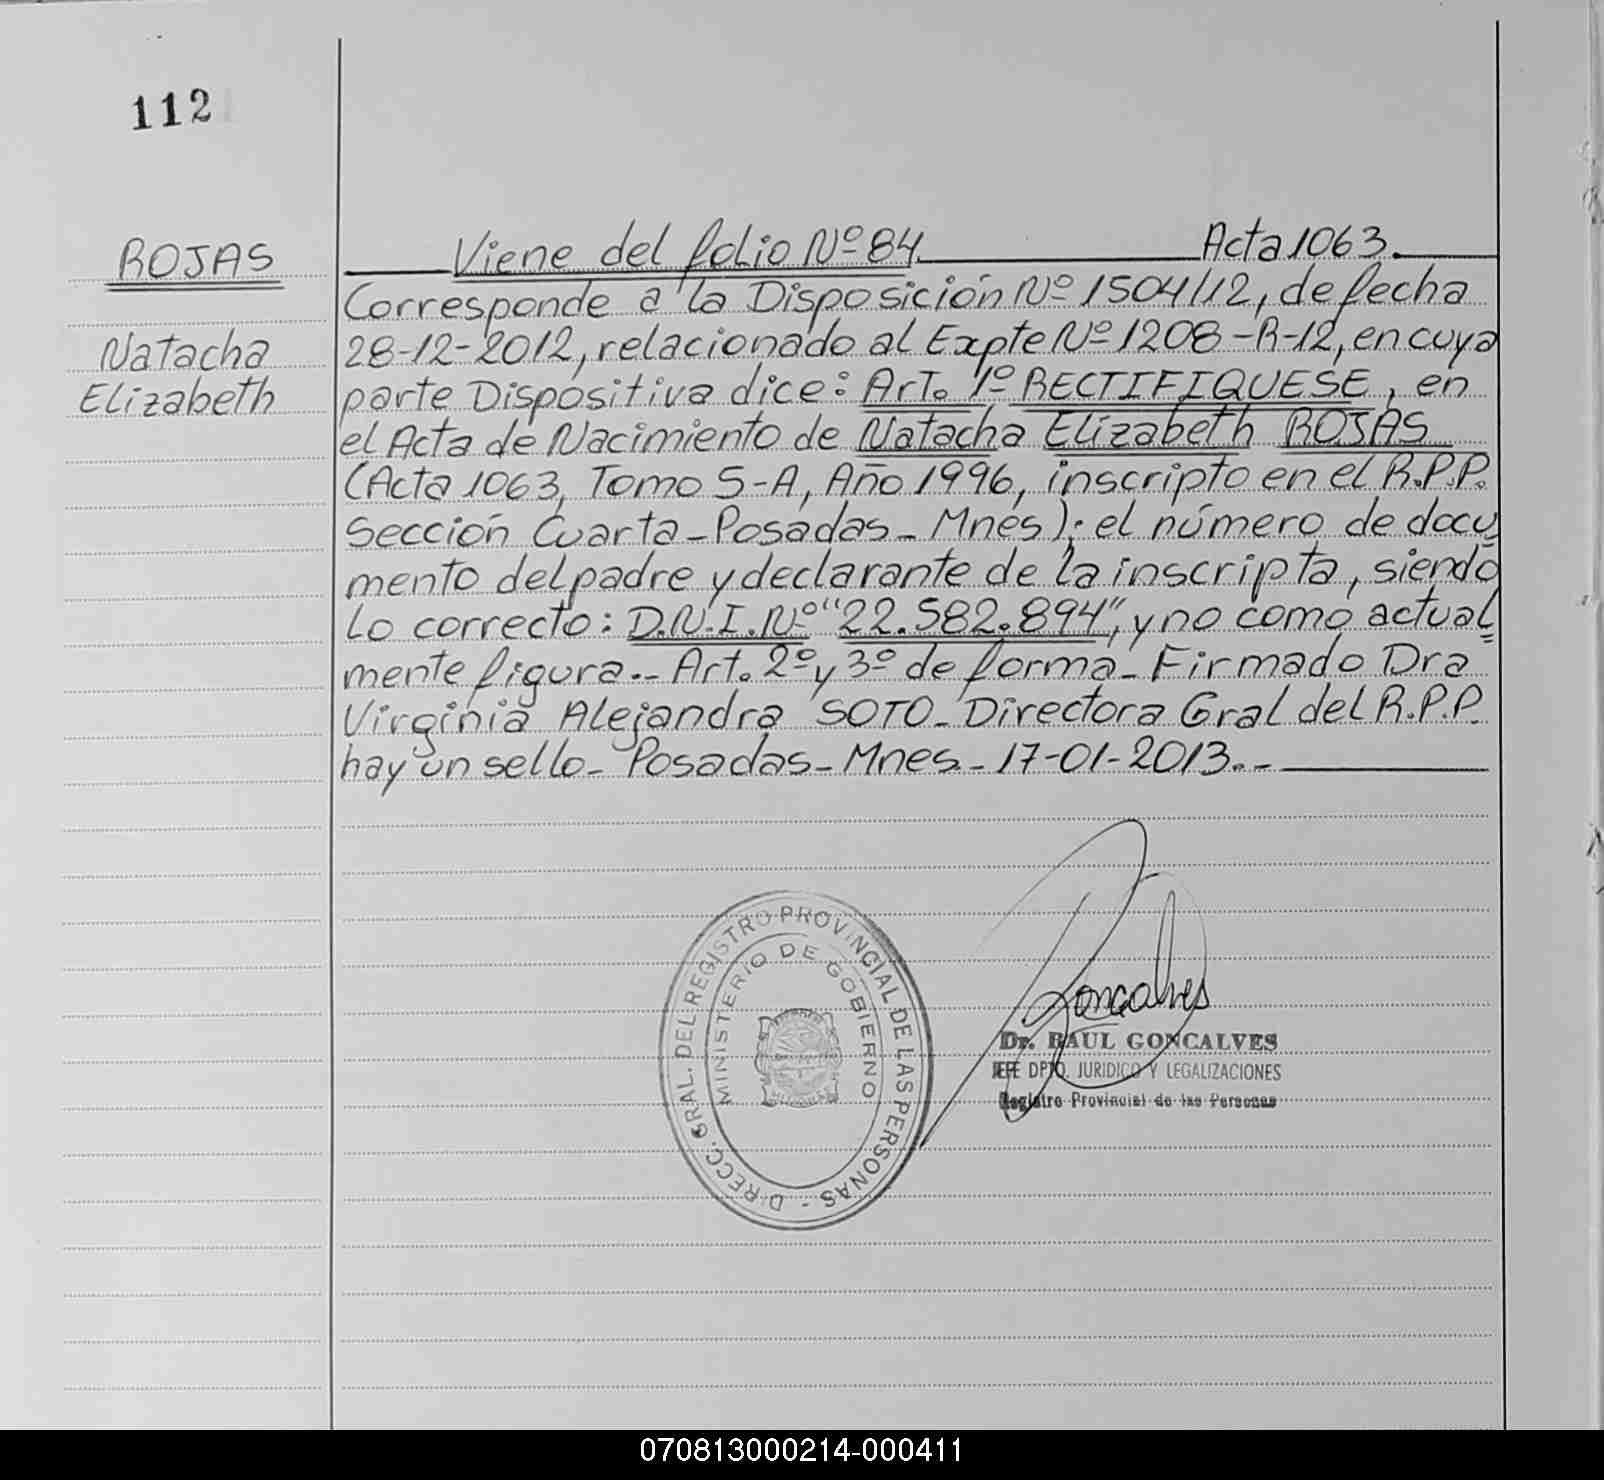 112
ROJAS
Natacha
Elizabeth
Viene del folio Nº 84. Acta 1063.
Corresponde a la Disposición Nº 1504/12, de fecha
28-12-2012, relacionado al Expte Nº 1208-R-12, en cuya
parte Dispositiva dice: Art. 1º RECTIFIQUESE, en
el Acta de Nacimiento de Natacha Elizabeth ROJAS
(Acta 1063, Tomo 5-A, Año 1996, inscripto en el R.P.P.
Sección Cuarta-Posadas-Mnes); el número de docu
mento del padre y declarante de la inscripta, siendo
lo correcto: D.N.I. Nº "22.582.894", y no como actual
mente figura.- Art. 2º y 3º de forma- Firmado Dra
Virginia Alejandra SOTO- Directora Gral del R.P.P.
hay un sello- Posadas- Mnes- 17-01-2013.-
DIRECC. GRAL. DEL REGISTRO PROVINCIAL DE LAS PERSONAS -
MINISTERIO DE GOBIERNO
Goncalves
Dr. RAUL GONCALVES
JEFE DPTO. JURIDICO Y LEGALIZACIONES
Registro Provincial de las Personas
070813000214-000411